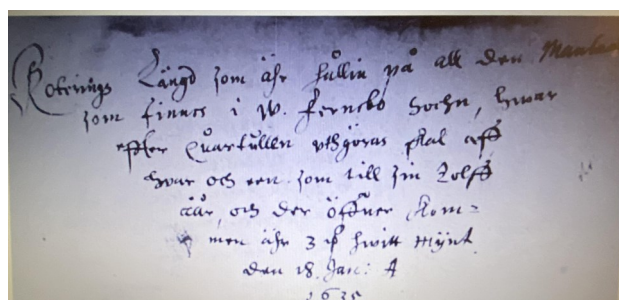 Roterings Längd som ähr hållin på all den Manskap
som finnes i W. Fernebo Sochn, hwar
effter Quartullen vthgöras skal aff
hwar och een som till sin Tolfft
åår, och der öffuer kom=
men ähr 3 hwitt Mÿnt
den 18. Jan: A
1635